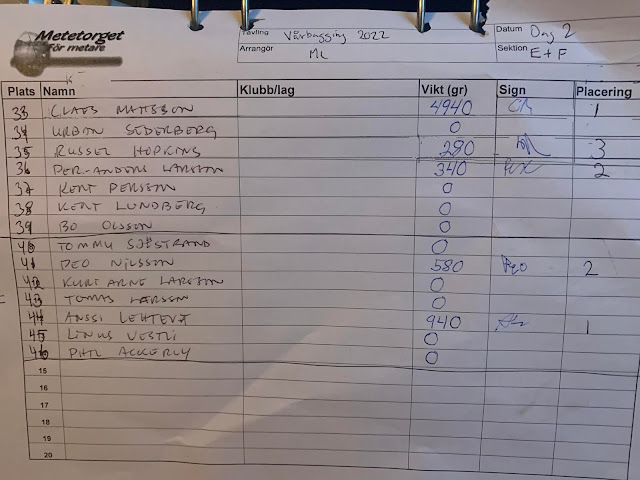 Metetorget
För metare
Tävling Vårbagging 2022
Datum Dag 2
Arrangör ML
Sektion E+F
Plats Namn Klubb/lag Vikt (gr) Sign Placering
33 CLAES MATTSSON 4940 CM 1
34 URBAN SEDERBERG 0
35 RUSSEL HOPKINS 290 3
36 PER-ANDERS LARSSON 340 2
37 KENT PERSSON 0
38 KENT LUNDBERG 0
39 BO OLSSON 0
40 TOMMY SJÖSTRAND 0
41 PEO NILSSON 580 Peo 2
42 KURT ARNE LARSSON 0
43 TOMAS LARSSON 0
44 ANSSI LEHTEVÄ 940 1
45 LINUS VESTLI 0
46 PHIL ACKERLY 0
15
16
17
18
19
20